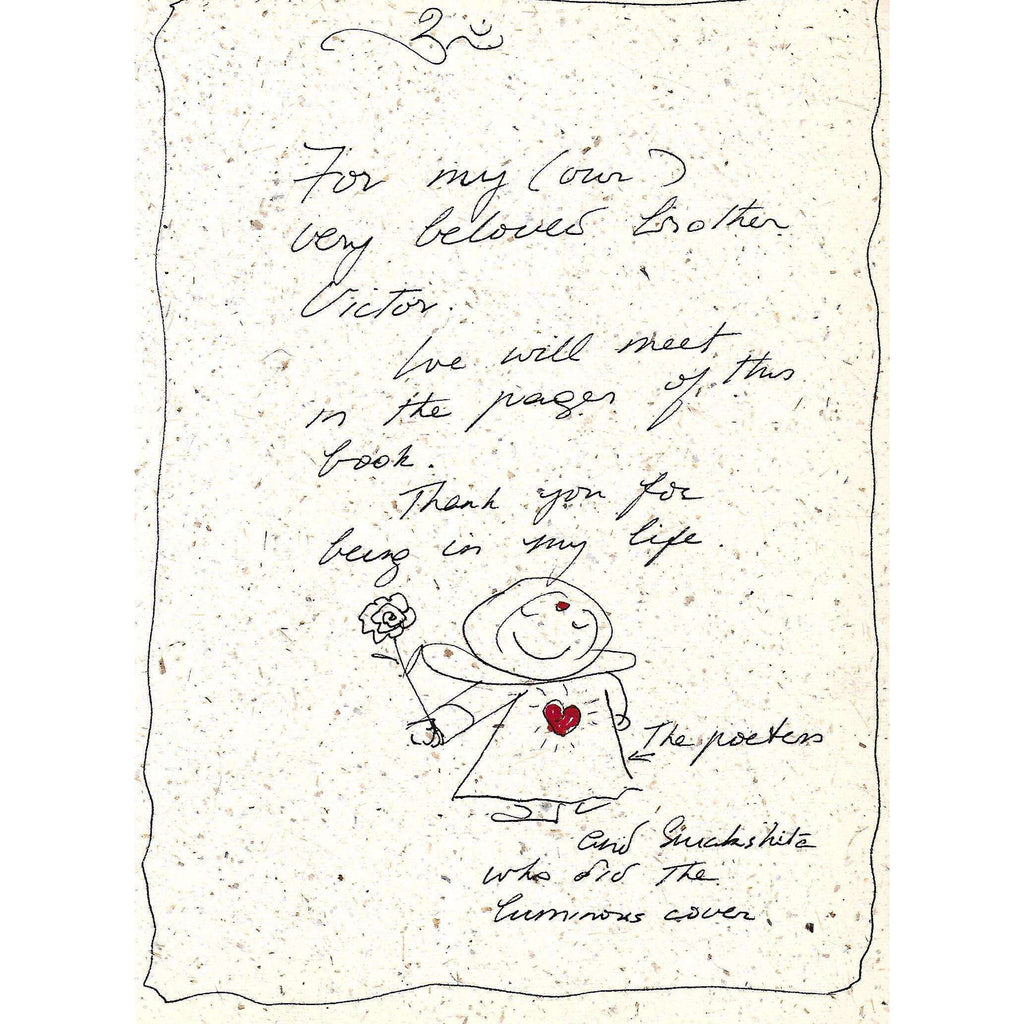 For my (our)
very beloved brother
Victor.
We will meet
in the pages of this
book.
Thank you for
being in my life.
The poetess
and
who did the
luminous cover.